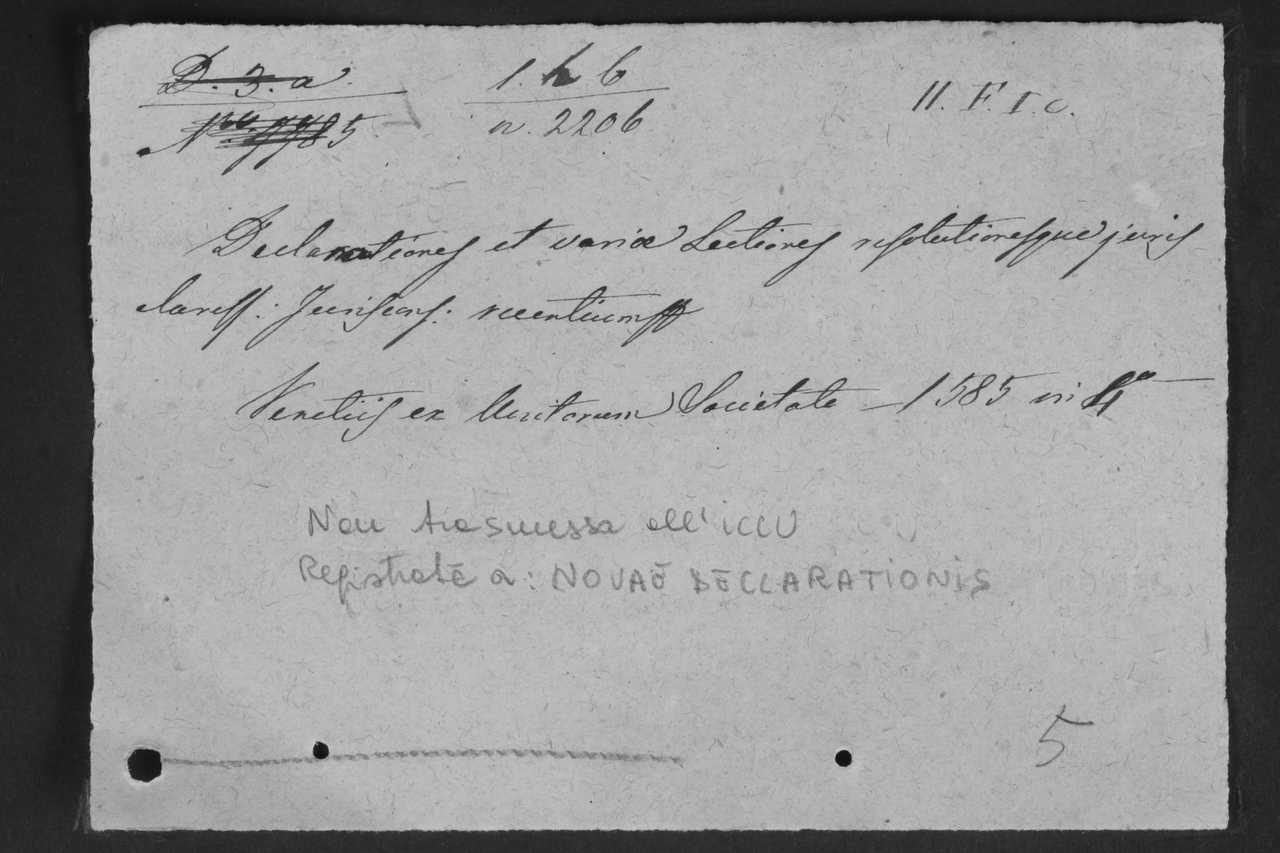 D. 3. a. 1. h. 6 11. F. I. c.
n. 2206
Declarationes et variæ Lectiones resolutionesque juris
clariss: Jurisscons: recentium
Venetiis ex Unitorum Societate — 1585 in 4º —
Non trasmessa all'ICCU
Registrata a: NOVAE DECLARATIONIS
5